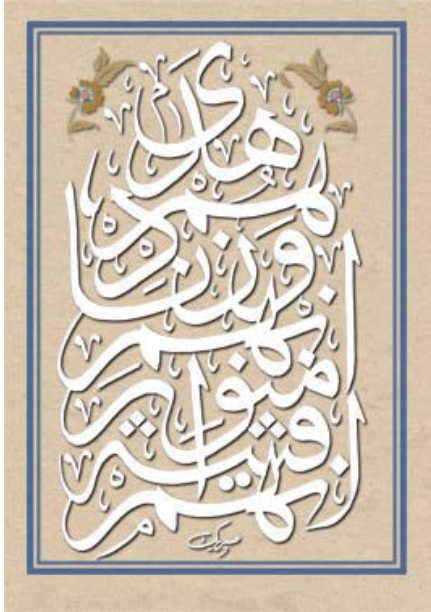 انهم فتية
امنوا بربهم
وزدناهم
هدى